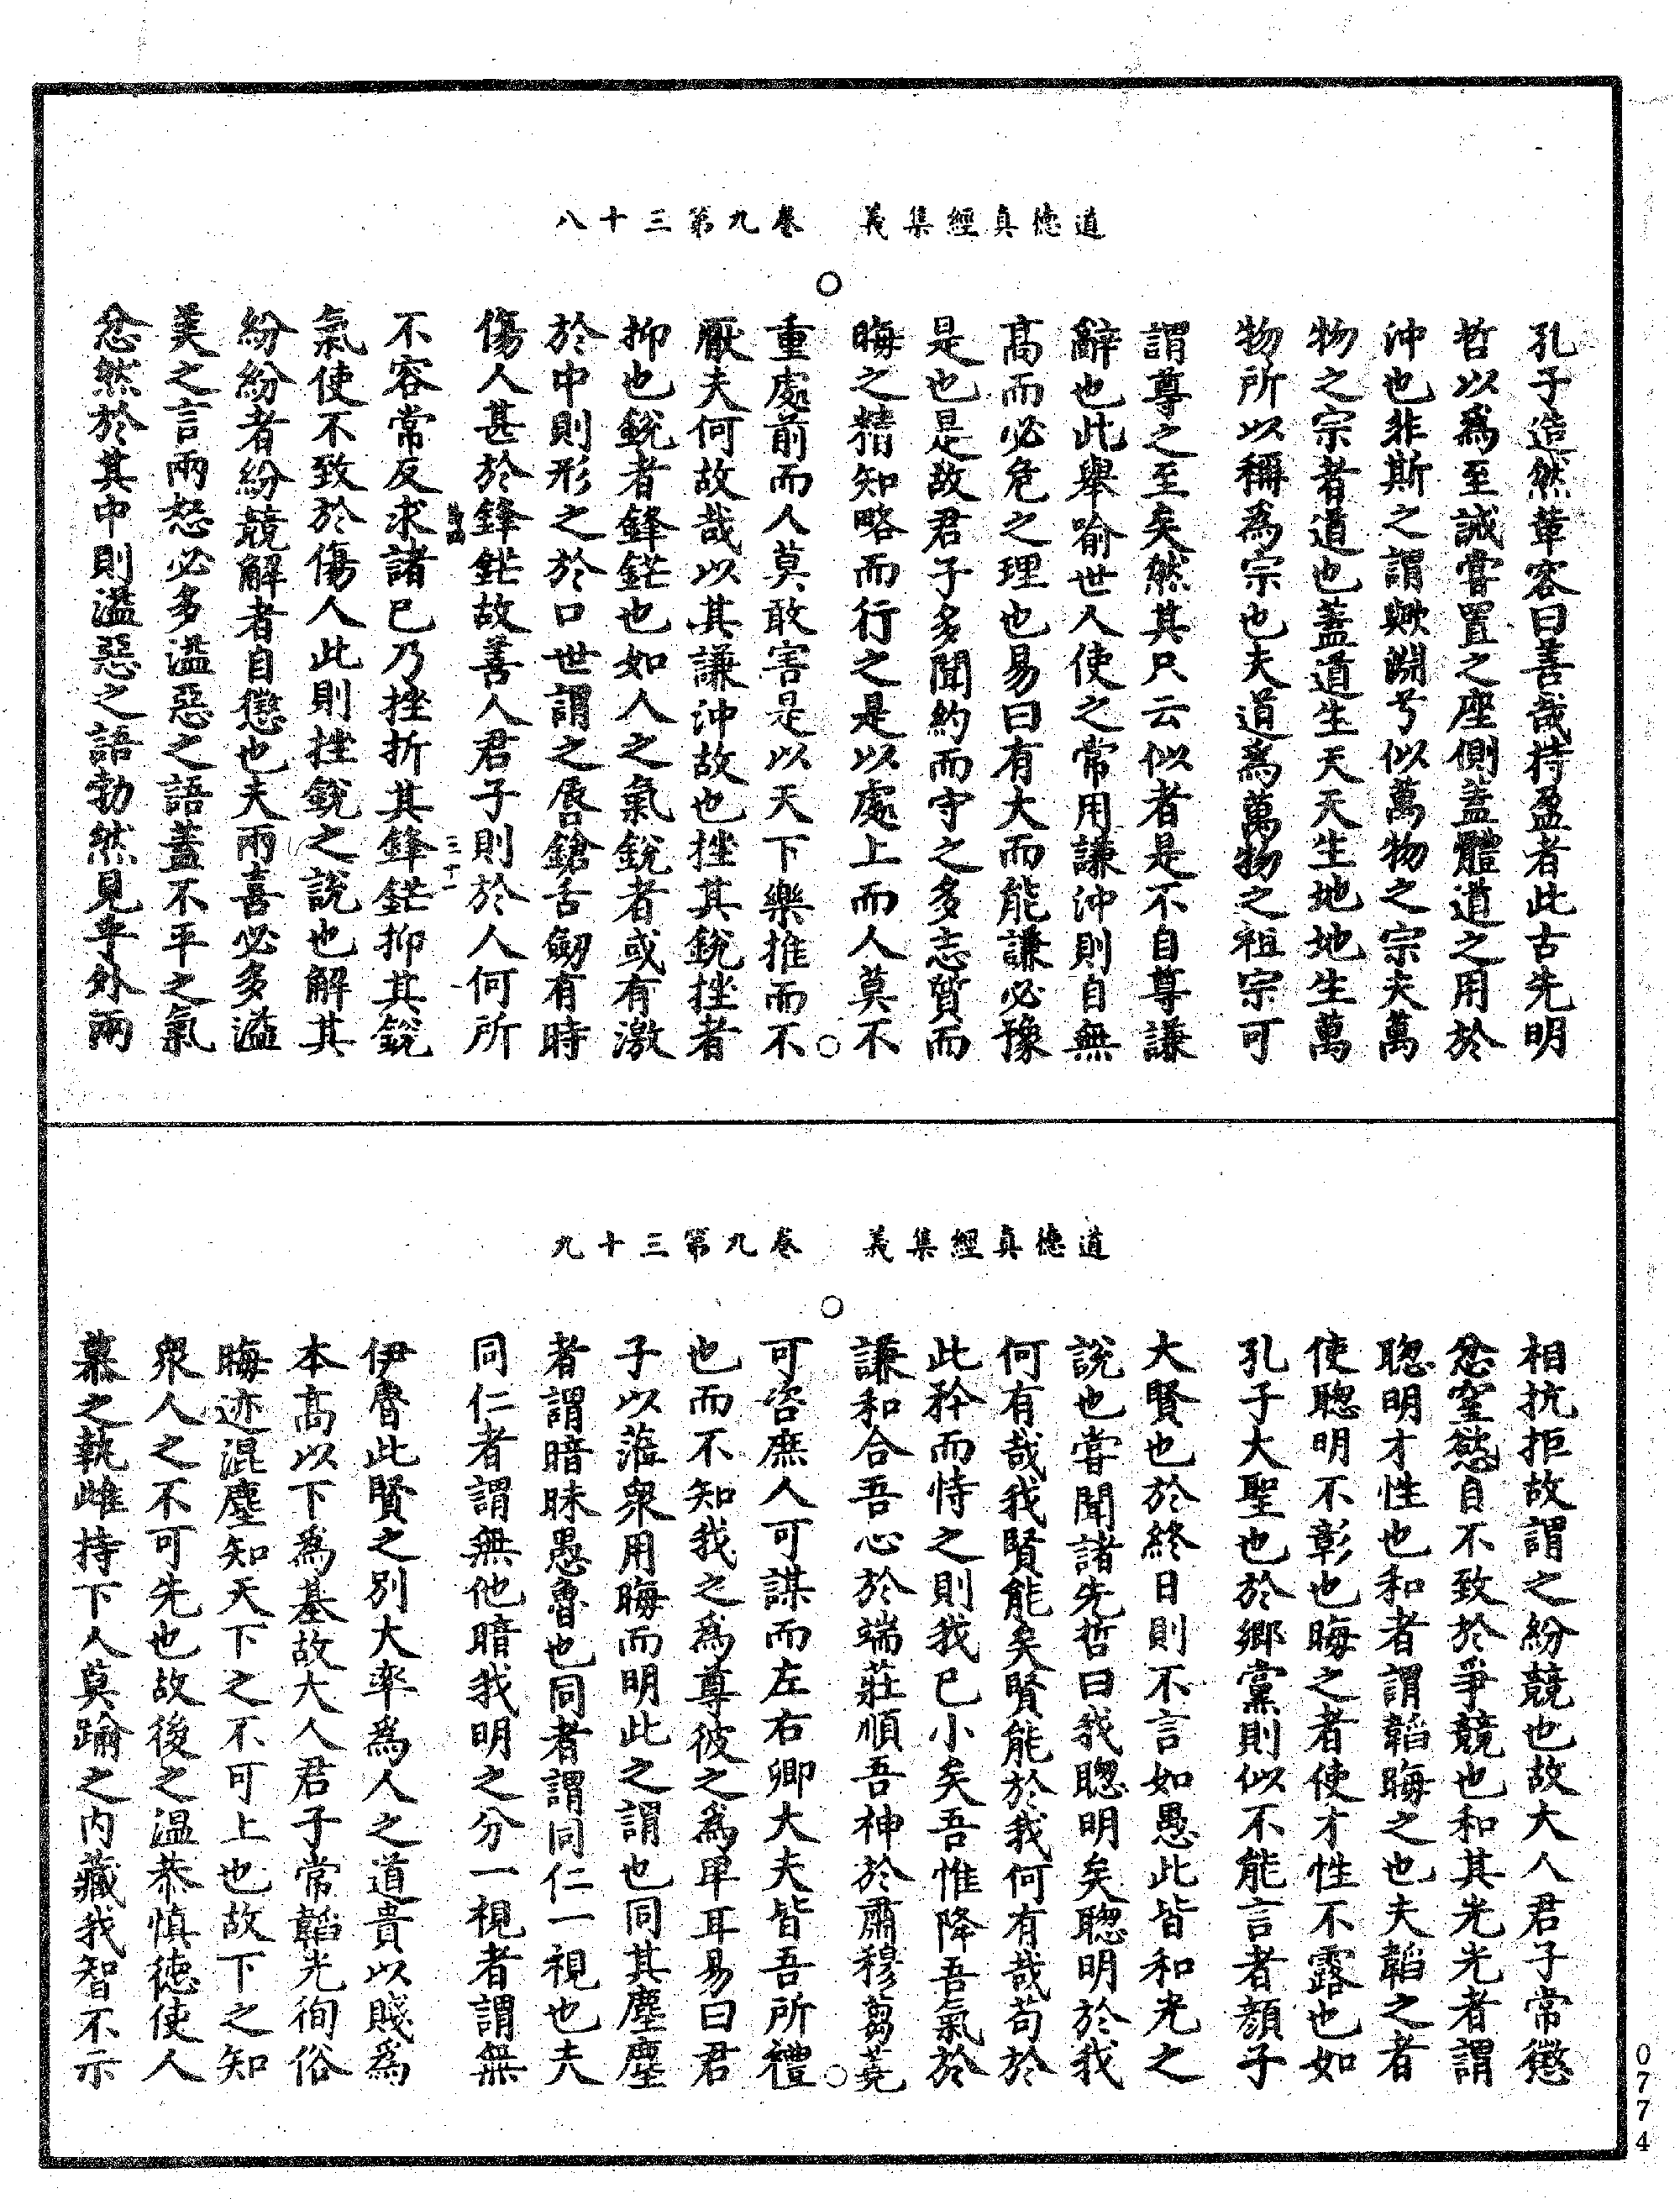 道德真經集義　卷九第三十八
孔子造然革容曰善哉持盈者此古先明
哲以爲至誡嘗置之座側蓋體道之用於
沖也非斯之謂歟淵兮似萬物之宗夫萬
物之宗者道也蓋道生天天生地地生萬
物所以稱爲宗也夫道爲萬物之祖宗可
謂尊之至矣然其只云似者是不自尊謙
辭也此舉喻世人使之常用謙沖則自無
高而必危之理也易曰有大而能謙必豫
是也是故君子多聞約而守之多志質而
晦之精知略而行之是以處上而人莫不
重處前而人莫敢害是以天下樂推而不
厭夫何故哉以其謙沖故也挫其銳挫者
抑也銳者鋒鋩也如人之氣銳者或有激
於中則形之於口世謂之唇鎗舌劒有時
傷人甚於鋒鋩故善人君子則於人何所
三十一
不容常反求諸已乃挫折其鋒鋩抑其銳
氣使不致於傷人此則挫銳之說也解其
紛紛者紛競解者自懲也夫兩喜必多溢
美之言兩怒必多溢惡之語蓋不平之氣
忿然於其中則溢惡之語勃然見乎外兩
道德真經集義　卷九第三十九
相抗拒故謂之紛競也故大人君子常懲
忿窒慾自不致於爭競也和其光光者謂
聰明才性也和者謂韜晦之也夫韜之者
使聰明不彰也晦之者使才性不露也如
孔子大聖也於鄉黨則似不能言者顏子
大賢也於終日則不言如愚此皆和光之
說也嘗聞諸先哲曰我聰明矣聰明於我
何有哉我賢能矣賢能於我何有哉苟於
此矜而恃之則我已小矣吾惟降吾氣於
謙和合吾心於端莊順吾神於肅穆蒭蕘
可咨庶人可謀而左右卿大夫皆吾所禮
也而不知我之爲尊彼之爲卑耳易曰君
子以蒞衆用晦而明此之謂也同其塵塵
者謂暗昧愚魯也同者謂同仁一視也夫
同仁者謂無他暗我明之分一視者謂無
伊脣此賢之別大率爲人之道貴以賤爲
本高以下爲基故大人君子常韜光徇俗
晦迹混塵知天下之不可上也故下之知
衆人之不可先也故後之溫恭慎德使人
慕之執雌持下人莫踰之內藏我智不示
0774